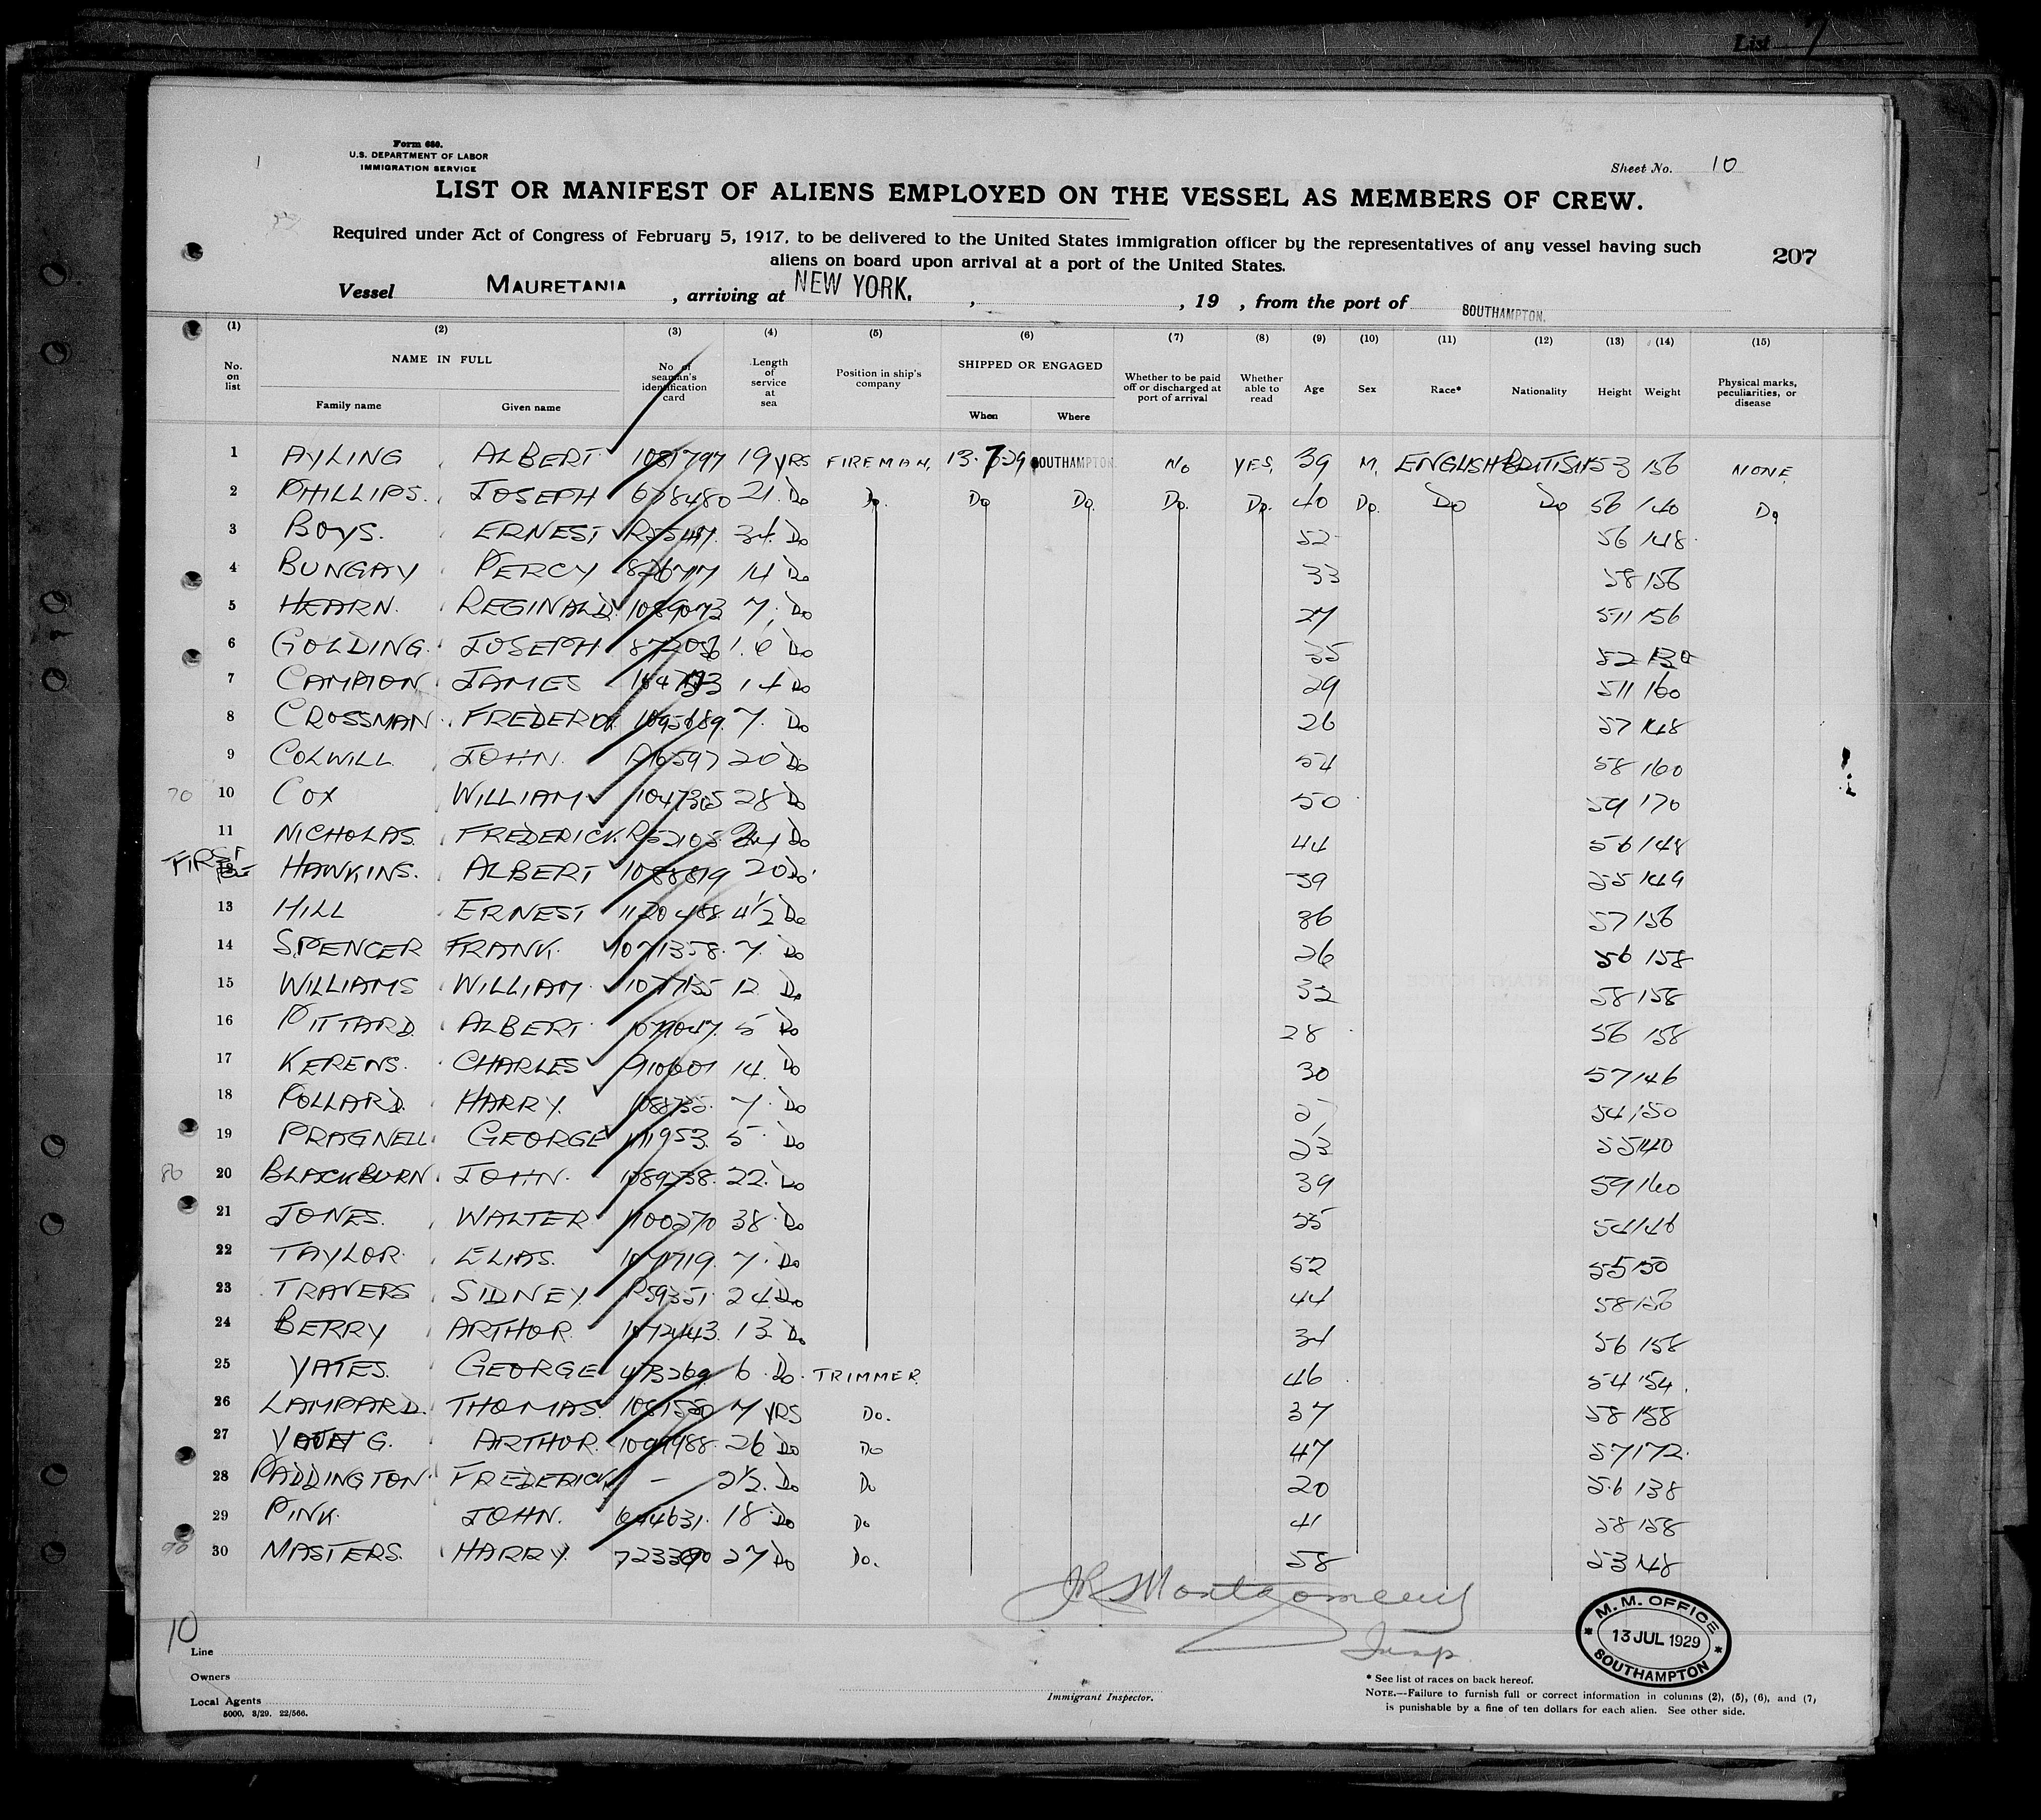 List 7
Form 680.
U.S. DEPARTMENT OF LABOR
IMMIGRATION SERVICE
Sheet No. 10
LIST OR MANIFEST OF ALIENS EMPLOYED ON THE VESSEL AS MEMBERS OF CREW.
Required under Act of Congress of February 5, 1917, to be delivered to the United States immigration officer by the representatives of any vessel having such
aliens on board upon arrival at a port of the United States.
207
Vessel MAURETANIA , arriving at NEW YORK. , , 19 , from the port of SOUTHAMPTON.
(1) (2) (3) (4) (5) (6) (7) (8) (9) (10) (11) (12) (13) (14) (15)
No. on list NAME IN FULL Family name Given name No of seaman's identification card Length of service at sea Position in ship's company SHIPPED OR ENGAGED When Where Whether to be paid off or discharged at port of arrival Whether able to read Age Sex Race* Nationality Height Weight Physical marks, peculiarities, or disease
1 AYLING ALBERT 1081797 19 YRS FIREMAN. 13.7.29 SOUTHAMPTON. No YES. 39 M. ENGLISH BRITISH 53 156 NONE.
2 PHILLIPS. JOSEPH 678480 21. Do Do. Do Do. Do. Do. 40 Do. Do Do 56 140 Do
3 BOYS. ERNEST 34 Do 52 56 148
4 BUNGAY PERCY 14 Do 33 58 156
5 HEARN. REGINALD. 1089073 7. Do 27 511 156
6 GOLDING. JOSEPH. Do 35 52 130
7 CAMPION. JAMES 14 Do 29 511 160
8 CROSSMAN. FREDERICK 7. Do 26 57 148
9 COLWILL JOHN. 20 Do 54 58 160
70 10 COX WILLIAM 1047305 28 Do 50 59 170
11 NICHOLAS. FREDERICK. R52105 Do 44 56 148
FIRST HAWKINS. ALBERT 1088819 20 Do 39 55 149
13 HILL ERNEST 1120488 4½ Do 36 57 156
14 SPENCER FRANK. 1071358. 7. Do 26 56 158
15 WILLIAMS WILLIAM. 1077135 12 Do 32 58 158
16 PITTARD. ALBERT. 5 Do 28 56 158
17 KERENS. CHARLES 910601 14. Do 30 57 146
18 POLLARD. HARRY. 7. Do 54 150
19 PRAGNELL. GEORGE 111953. 5. Do 23 55 140
80 20 BLACKBURN JOHN. 1089238. 22. Do 39 59 160
21 JONES. WALTER 1100270 38. Do 55 54 146
22 TAYLOR. ELIAS. 1071719. 7. Do 52 55 150
23 TRAVERS SIDNEY. R59351. 24. Do 44 58 156
24 BERRY ARTHUR. 1072443. 13 Do 34 56 158
25 YATES. GEORGE 473269 6. Do. TRIMMER. 46 54 154.
26 LAMPARD. THOMAS. 1081580 7 YRS Do. 37 58 158
27 ARTHUR. 26 Do Do 47 57 172.
28 PADDINGTON. FREDERICK – 2½. Do Do 20 5.6 138
29 PINK. JOHN. 694631. 18. Do Do 41 58 158
90 30 MASTERS. HARRY. 27 Do Do. 58 53 148
JR Montgomery
Insp.
10
M. M. OFFICE
13 JUL 1929
SOUTHAMPTON
Line
Owners
Local Agents
5000. 3/29. 22/566.
Immigrant Inspector.
* See list of races on back hereof.
NOTE.—Failure to furnish full or correct information in columns (2), (5), (6), and (7),
is punishable by a fine of ten dollars for each alien. See other side.